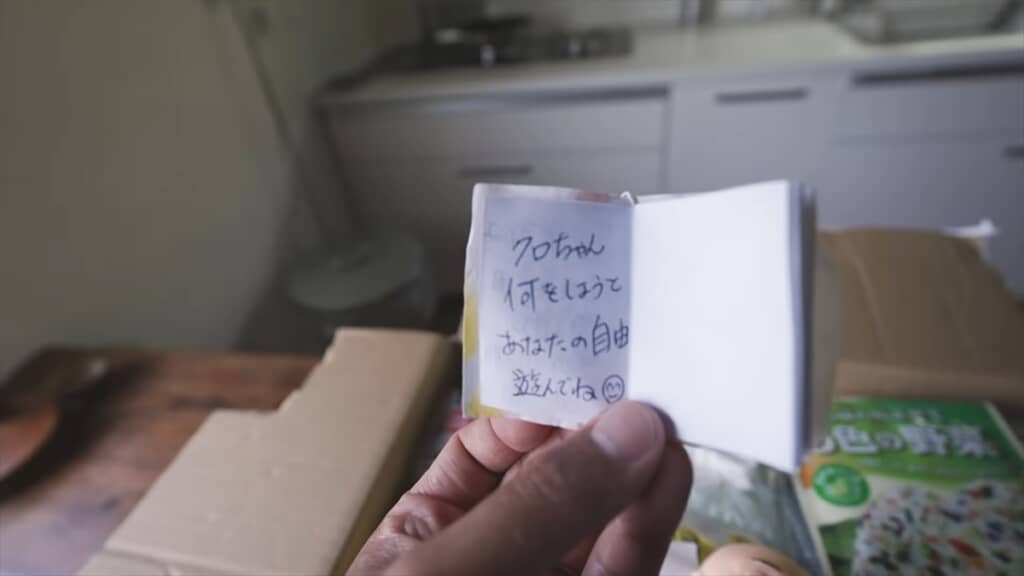 クロちゃん
何をしようと
あなたの自由
遊んでね
色の野菜